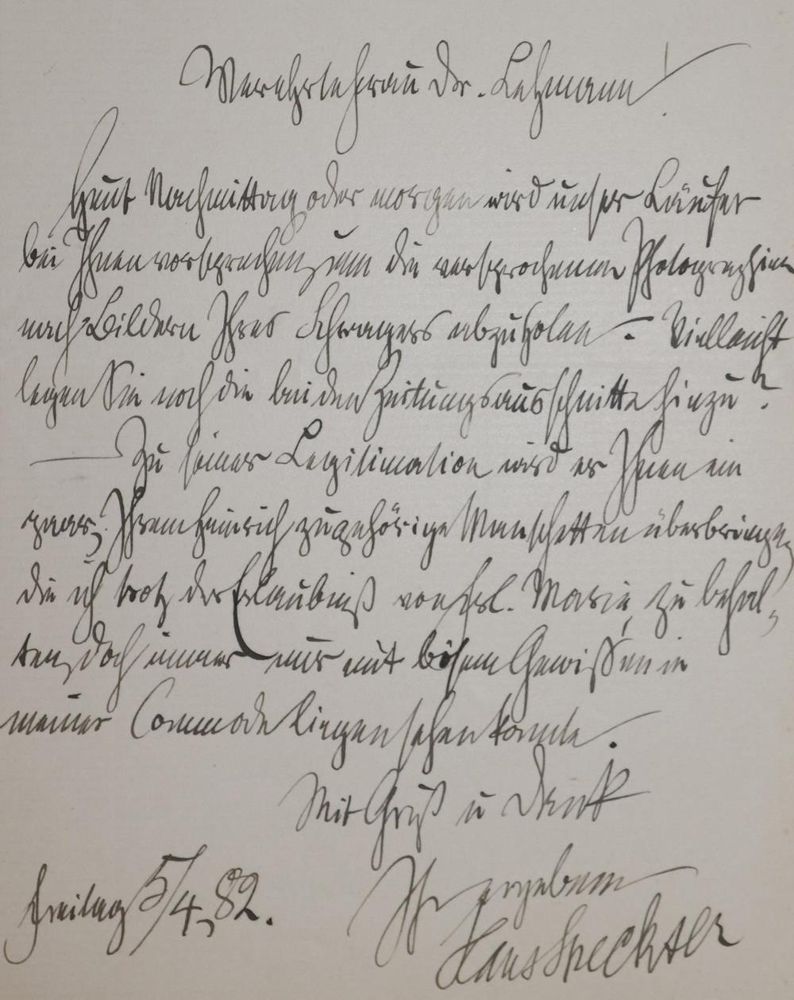 Verehrte Frau Dr. Lehmann!
Heut Nachmittag oder morgen wird unser Läufer
bei Ihnen vorsprechen, um die versprochenen Photographien
nach Bildern Ihres Schwagers abzuholen – Vielleicht
legen Sie noch die beiden Zeitungsausschnitte hinzu?
— Zu seiner Legitimation wird er Ihnen ein
paar, Ihrem Heinrich zugehörige Manschetten überbringen,
die ich trotz der Erlaubniß von Frl. Marie, zu behal-
ten, doch immer nur mit bösem Gewissen in
meiner Commode liegen sehen konnte.
Mit Gruß u Dank
Ihr ergebener
Freitag 5/4, 82.
Hans Speckter